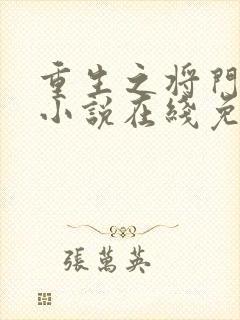 重生之将門
小説在綫免
張萬英